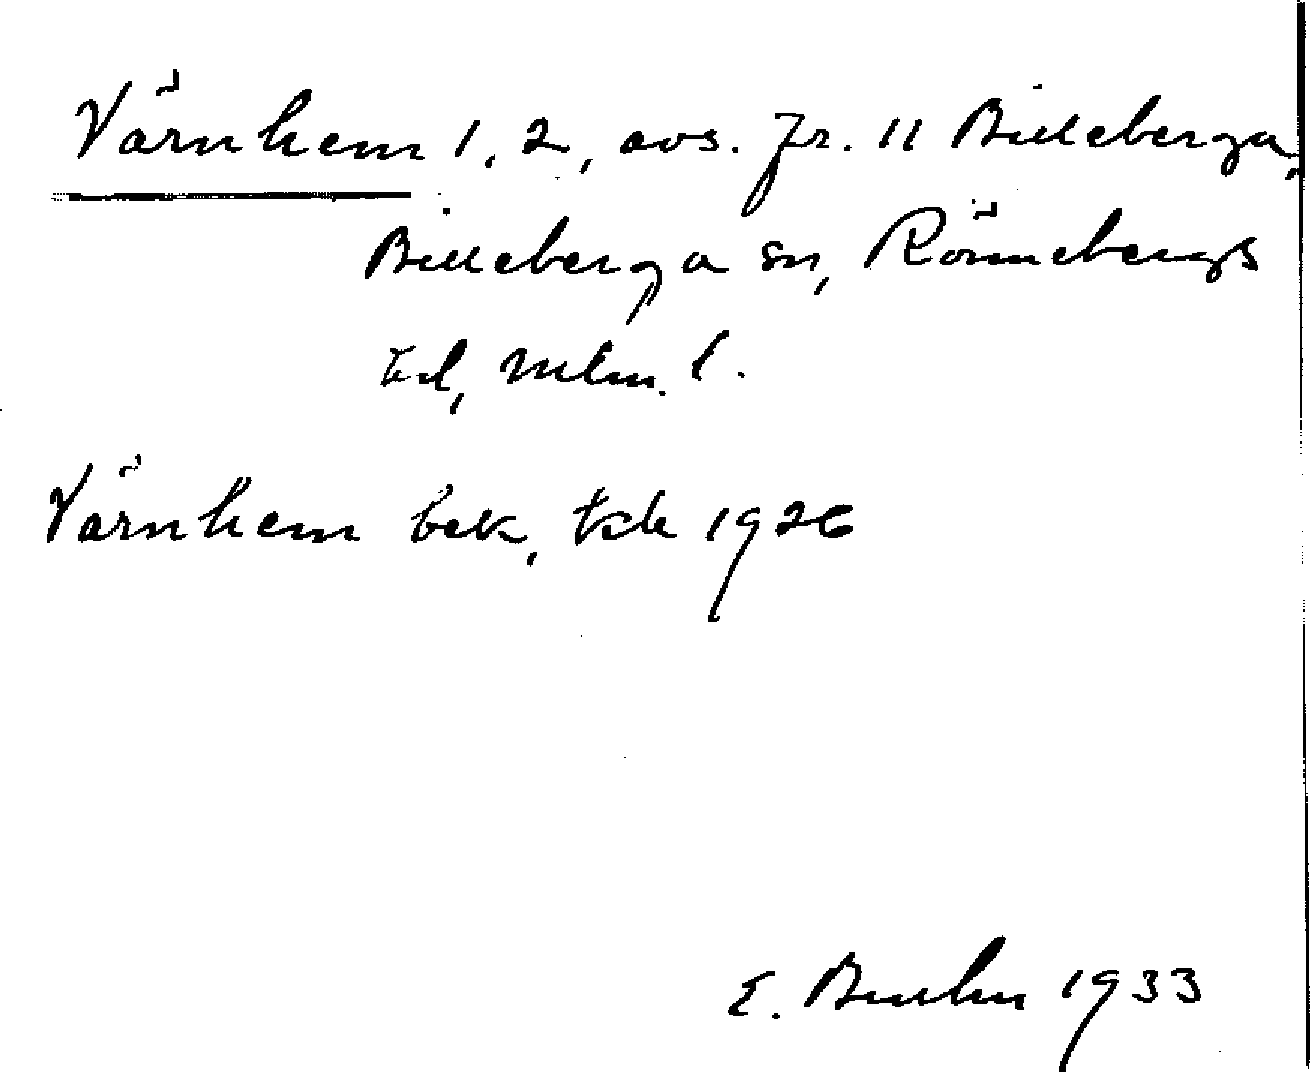 Värnhem 1, 2, avs. fr. 11 Billeberga,
Billeberga sn, Rönnebergs
hd, Mlm. l.
Värnhem bek, tsk 1926
E. 1933